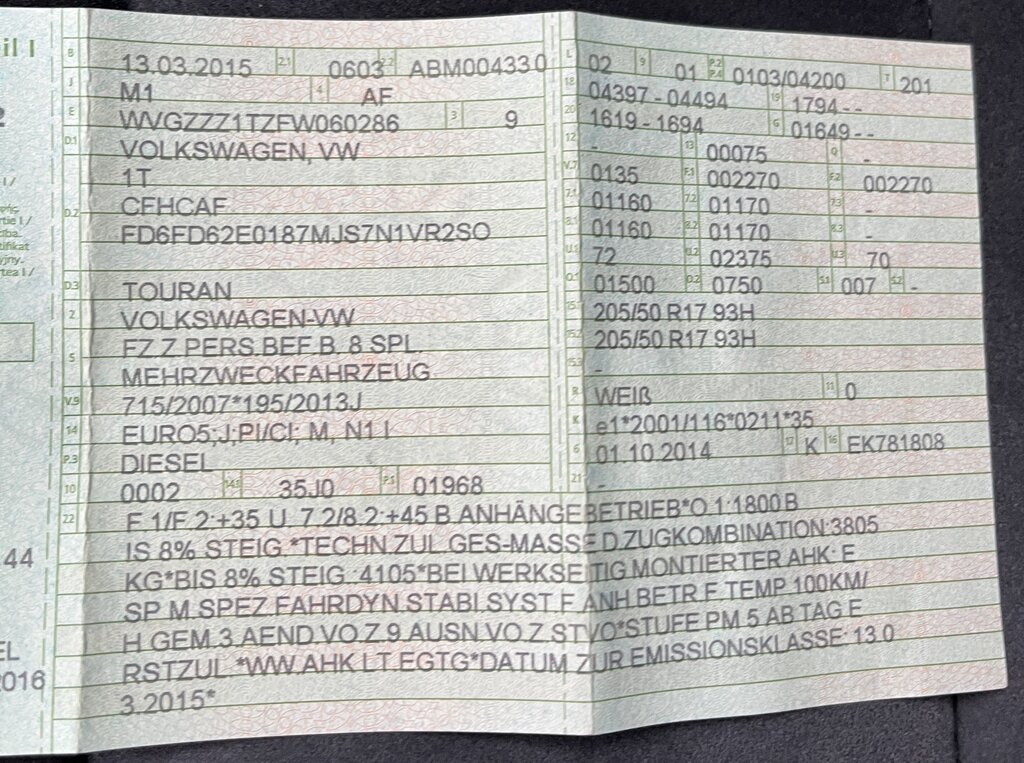 il I
B 13.03.2015 2.1 0603 2.2 ABM004330
J M1 4 AF
E WVGZZZ1TZFW060286 3 9
D.1 VOLKSWAGEN, VW
1T
D.2 CFHCAF
FD6FD62E0187MJS7N1VR2SO
D.3 TOURAN
2 VOLKSWAGEN-VW
5 FZ.Z.PERS.BEF.B. 8 SPL.
MEHRZWECKFAHRZEUG
V.9 715/2007*195/2013J
14 EURO5;J;PI/CI; M, N1 I
P.3 DIESEL
10 0002 14.1 35J0 P.1 01968
L 02 9 01 P.2 P.4 0103/04200 T 201
18 04397-04494 19 1794--
20 1619-1694 G 01649--
12 - 13 00075 Q -
V.7 0135 F.1 002270 F.2 002270
7.1 01160 7.2 01170 7.3 -
8.1 01160 8.2 01170 8.3 -
U.1 72 U.2 02375 U.3 70
O.1 01500 O.2 0750 S.1 007 S.2 -
15.1 205/50 R17 93H
15.2 205/50 R17 93H
15.3 -
R WEIß 11 0
K e1*2001/116*0211*35
6 01.10.2014 17 K 16 EK781808
21 -
22 F.1/F.2:+35 U. 7.2/8.2:+45 B.ANHÄNGEBETRIEB*O.1:1800 B
IS 8% STEIG.*TECHN.ZUL.GES-MASSE D.ZUGKOMBINATION:3805
KG*BIS 8% STEIG.:4105*BEI WERKSEITIG MONTIERTER AHK: E
SP M.SPEZ.FAHRDYN.STABI.SYST.F.ANH.BETR.F.TEMP.100KM/
H GEM.3.AEND.VO.Z.9.AUSN.VO.Z.STVO*STUFE PM 5 AB TAG E
RSTZUL.*WW.AHK LT.EGTG*DATUM ZUR EMISSIONSKLASSE: 13.0
3.2015*
44
EL
2016